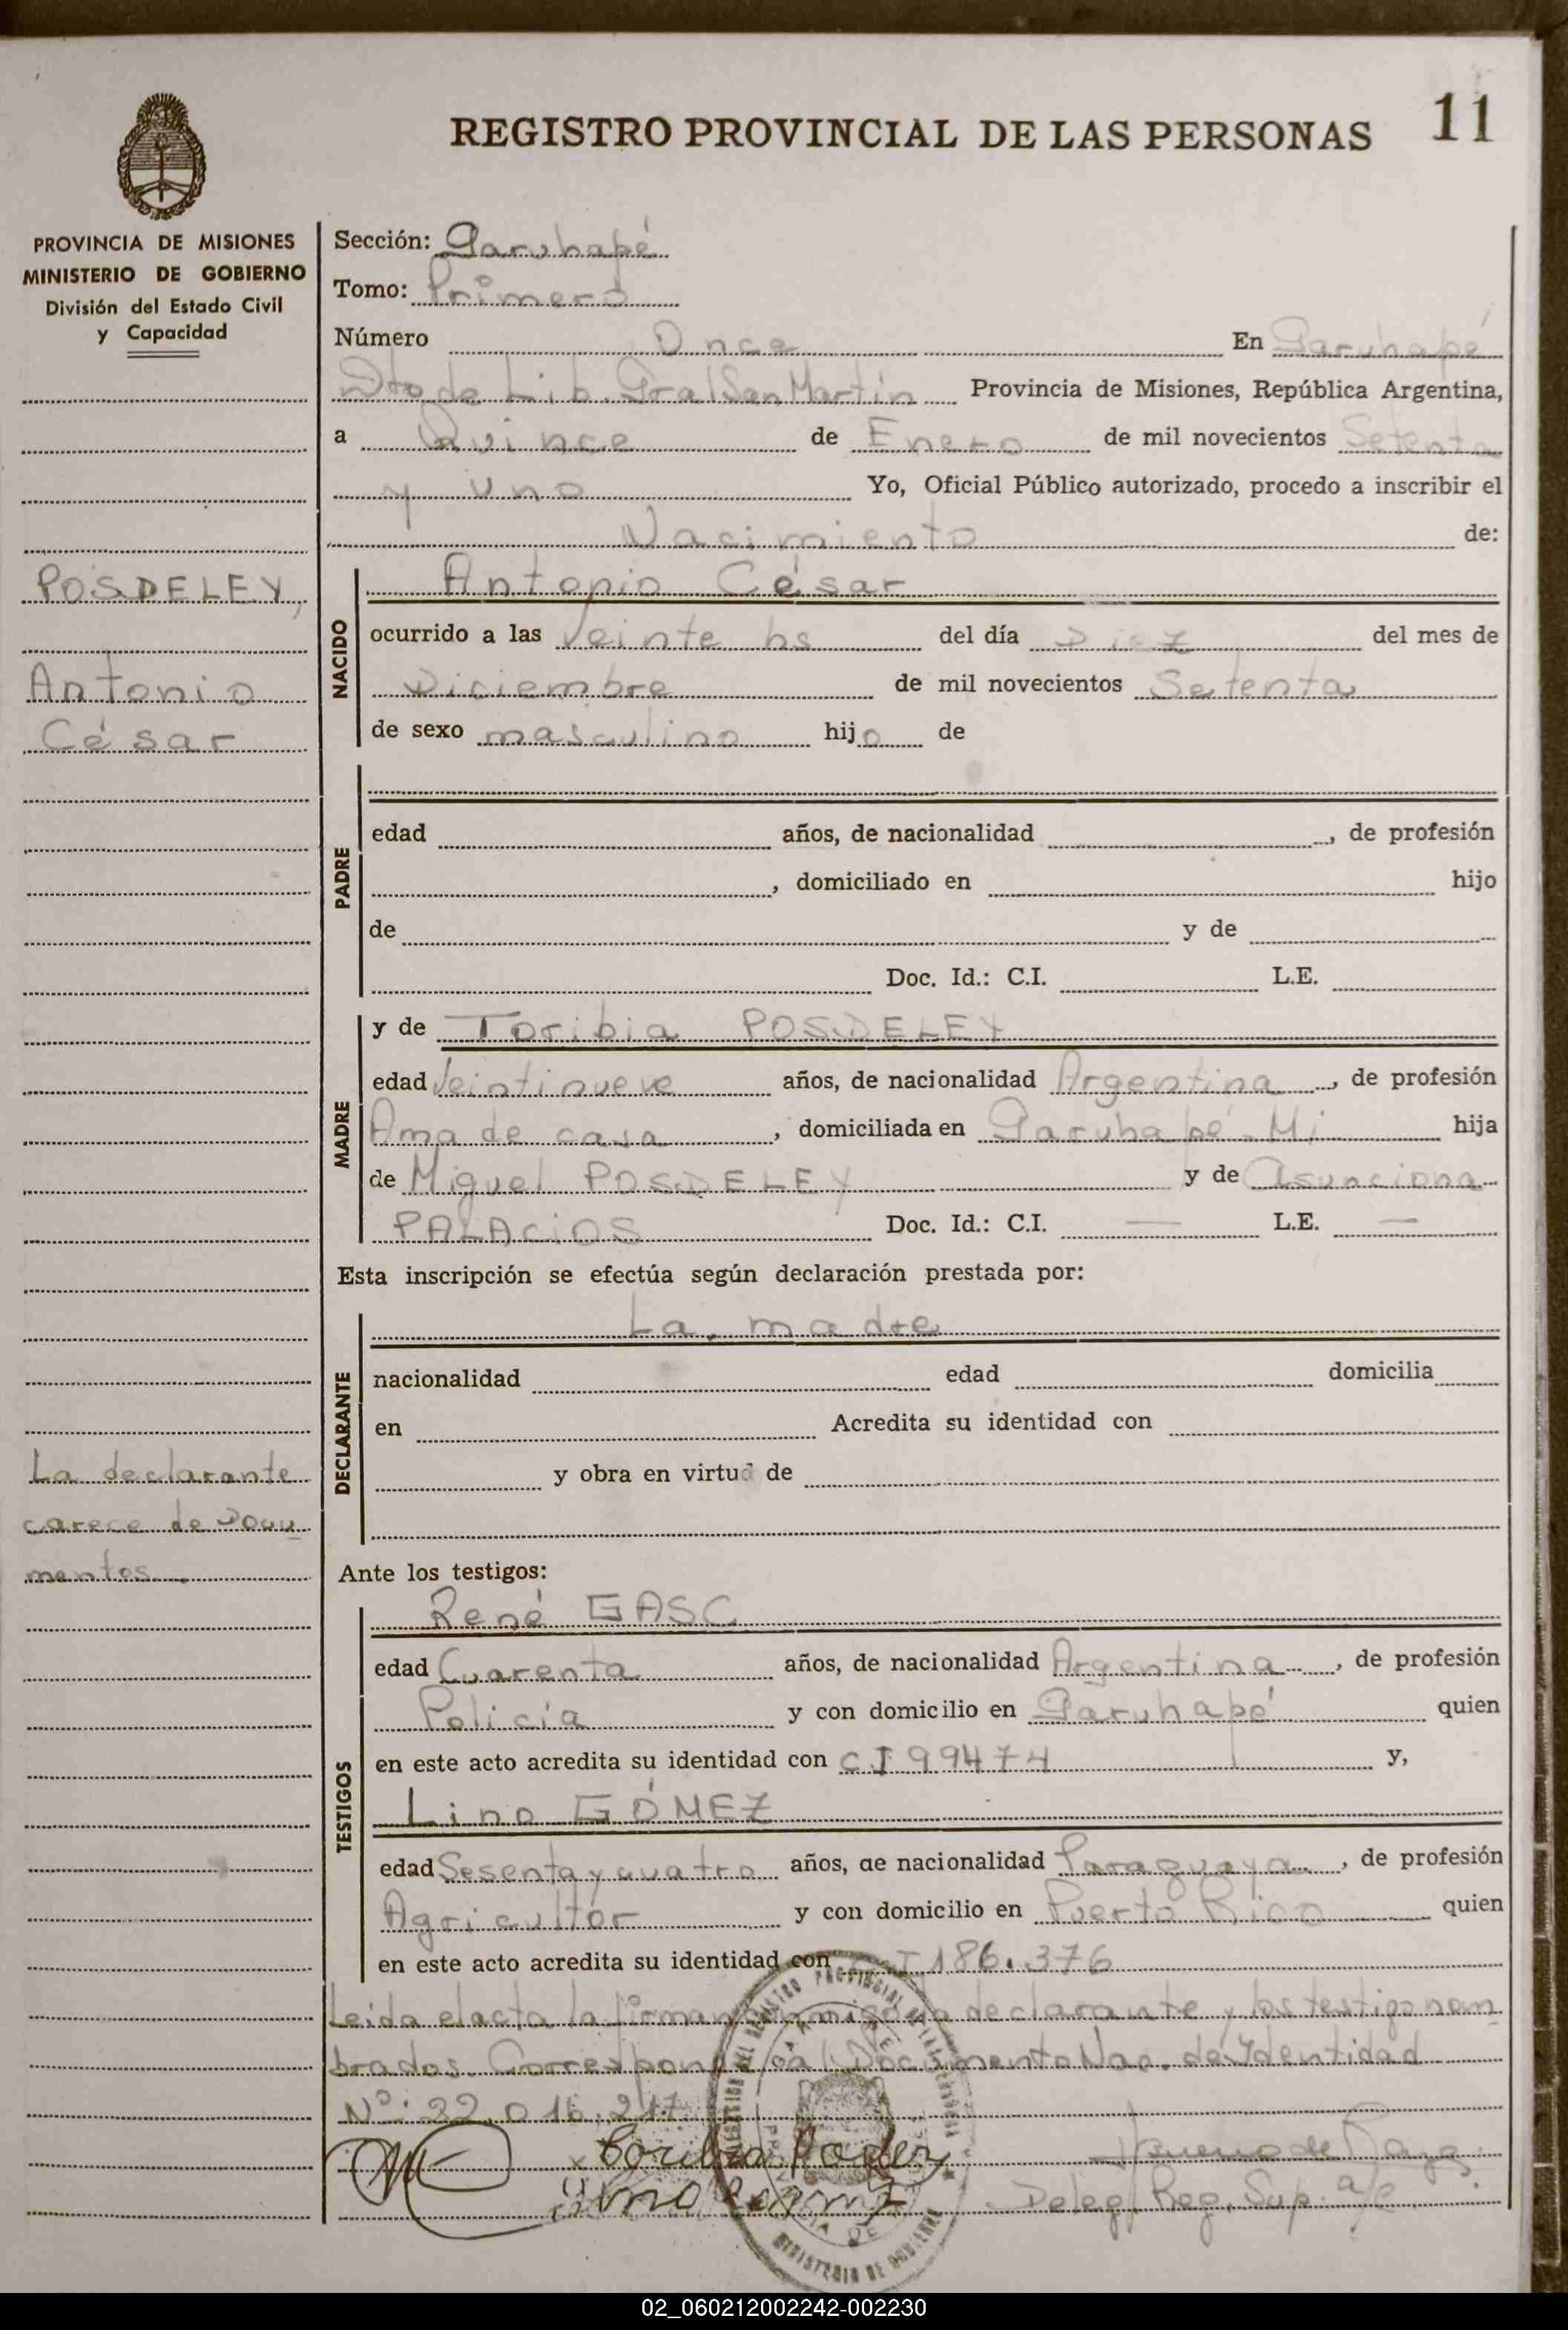 REGISTRO PROVINCIAL DE LAS PERSONAS 11
PROVINCIA DE MISIONES
MINISTERIO DE GOBIERNO
División del Estado Civil
y Capacidad
POSDELEY,
Antonio
César
La declarante
carece de Docu
mentos.
Sección: Garuhapé
Tomo: Primero
Número Once En Garuhapé
Dto de Lib. Gral San Martín Provincia de Misiones, República Argentina,
a Quince de Enero de mil novecientos Setenta
y uno Yo, Oficial Público autorizado, procedo a inscribir el
Nacimiento de:
NACIDO
Antonio César
ocurrido a las Veinte hs del día Diez del mes de
Diciembre de mil novecientos Setenta
de sexo masculino hijo de
PADRE
edad años, de nacionalidad , de profesión
, domiciliado en hijo
de y de
Doc. Id.: C.I. L.E.
MADRE
y de Toribia POSDELEY
edad Veintinueve años, de nacionalidad Argentina, de profesión
Ama de casa, domiciliada en Garuhapé - Mi hija
de Miguel POSDELEY y de Asunciona
PALACIOS Doc. Id.: C.I. — L.E. —
Esta inscripción se efectúa según declaración prestada por:
DECLARANTE
La madre
nacionalidad edad domicilia
en Acredita su identidad con
y obra en virtud de
Ante los testigos:
TESTIGOS
René GASC
edad Cuarenta años, de nacionalidad Argentina, de profesión
Policía y con domicilio en Garuhapé quien
en este acto acredita su identidad con CI 99474 y,
Lino GÓMEZ
edad Sesenta y cuatro años, de nacionalidad Paraguaya, de profesión
Agricultor y con domicilio en Puerto Rico quien
en este acto acredita su identidad con I 186.376
Leida el acta la firman conmigo la declarante y los testigo nom
brados. Corresponde al Documento Nac. de Identidad
Nº: 22.016.217
Deleg. Reg. Sup. a/c
MINISTERIO DE GOBIERNO
02_060212002242-002230